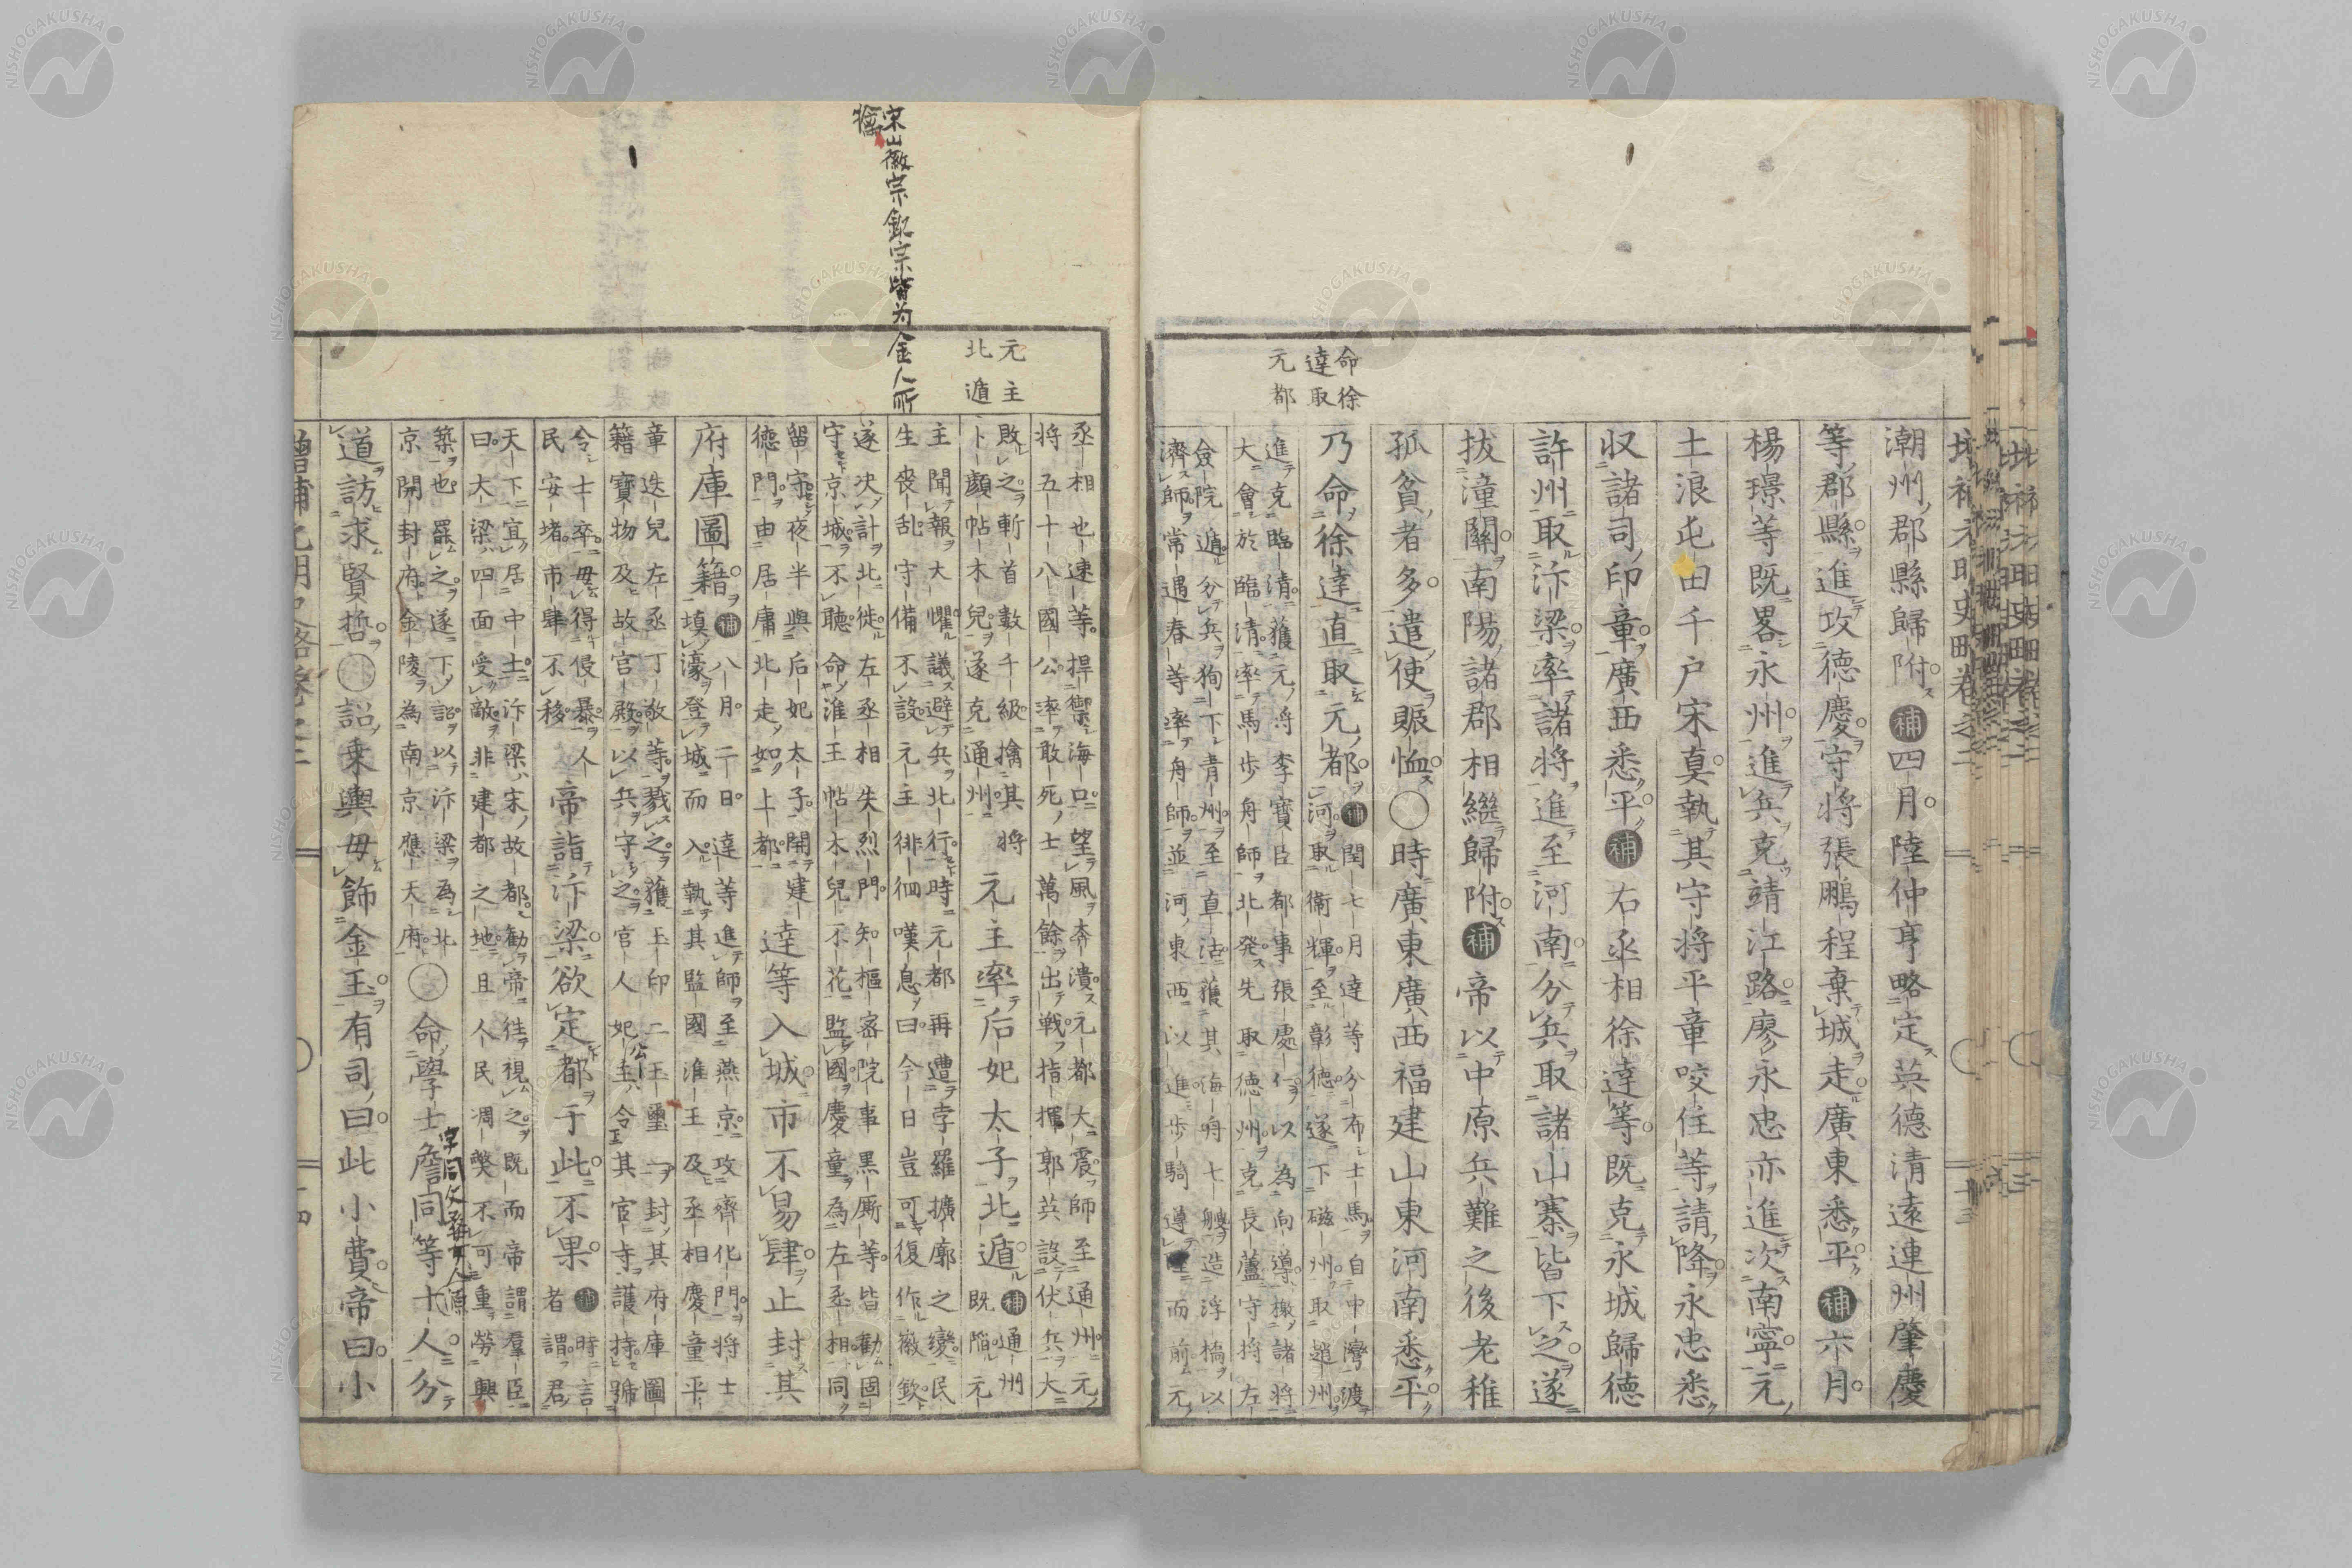 潮州郡縣歸附補四月陸仲亨略定英德清遠連州肇慶
等郡縣進攻德慶守将張鵬程棄城走廣東悉平補六月
楊璟等既畧永州進兵克靖江路廖永忠亦進次南寧元
土浪屯田千户宋真執其守将平章咬住等請降永忠悉
収諸司印章廣西悉平補右丞相徐達等既克永城歸德
許州取汴梁率諸将進至河南分兵取諸山寨皆下之遂
拔潼關南陽諸郡相繼歸附補帝以中原兵難之後老稚
孤貧者多遣使賑恤○時廣東廣西福建山東河南悉平
命徐
達取
元都
乃命徐達直取元都補閏七月達等分布士馬自中灣渡
河取衞輝至彰德遂下磁州取趙州
進克臨清獲元将李寶臣都事張處仁以為向導檄諸将
大會於臨清率馬步舟師北発先取德州克長蘆守将左
僉院遁分兵狥下青州至直沽獲其海舟七艘造浮橋以
濟師常遇春等率舟師並河東西以進步騎遵而前元
丞相也速等捍禦海口望風奔潰元都大震師至通州元
将五十八國公率敢死士萬餘出戦指揮郭英設伏兵大
元主
北遁
敗之斬首數千級擒其将
卜顔帖木兒遂克通州
元主率后妃太子北遁補通州
既陥元
主聞報大懼議避兵北行時元都再遭孛羅擴廓之變民
生喪乱守備不設元主徘徊嘆息曰今日豈可復作徽欽
宋山徽宗欽宗皆为金人所
擒
遂决計北徙左丞相失烈門知樞宻院事黒厮等皆勸固
守京城不聽命淮王帖木兒不花監國慶童為左丞相同
留守夜半與后妃太子開建
德門由居庸北走如上都
達等入城市不易肆止封其
府庫圖籍補八月二日達等進師至燕京攻齊化門将士
填濠登城而入執其監國淮王及丞相慶童平
章迭兒左丞丁敬等戮之獲玉印二玉璽一封其府庫圖
籍寶物及故宮殿以兵守之官人妃主令其官寺護持號
令士卒毋得侵暴人
民安堵市肆不移
帝詣汴梁欲定都于此不果補時言
者謂君
天下宜居中土汴梁宋故都勸帝徃視之既而帝謂羣臣
曰大梁四面受敵非建都之地且人民凋弊不可重勞興
築也罷之遂下詔以汴梁為北
京開封府金陵為南京應天府
○命學士詹同等十人分
字同文
道訪求賢哲○詔乗輿毋飾金玉有司曰此小費帝曰小